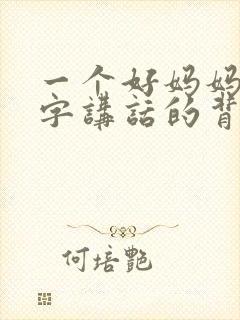 一个好妈妈
字講話的背
何培艷